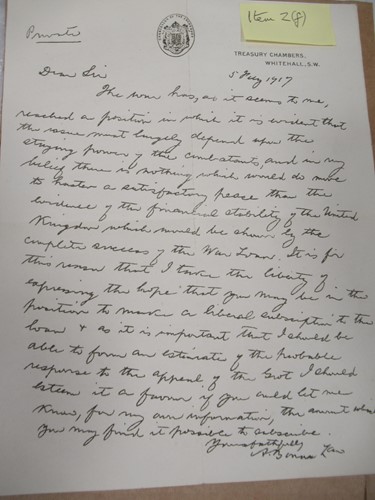 Item 2(f)
Private
TREASURY CHAMBERS,
WHITEHALL, S.W.
5 Feby 1917
Dear Sir
The war has, as it seems to me,
reached a position in which it is evident that
the issue must largely depend upon the
staying power of the combatants, and in my
belief there is nothing which would do more
to hasten a satisfactory peace than the
evidence of the financial stability of the United
Kingdom which would be shown by the
complete success of the War Loan. It is for
this reason that I take the liberty of
expressing the hope that you may be in the
position to make a liberal subscription to the
loan & as it is important that I should be
able to form an estimate of the probable
response to the appeal of the Govt I should
esteem it a favour if you could let me
know, for my own information, the amount which
you may find it possible to subscribe.
Yours faithfully
A Bonar Law